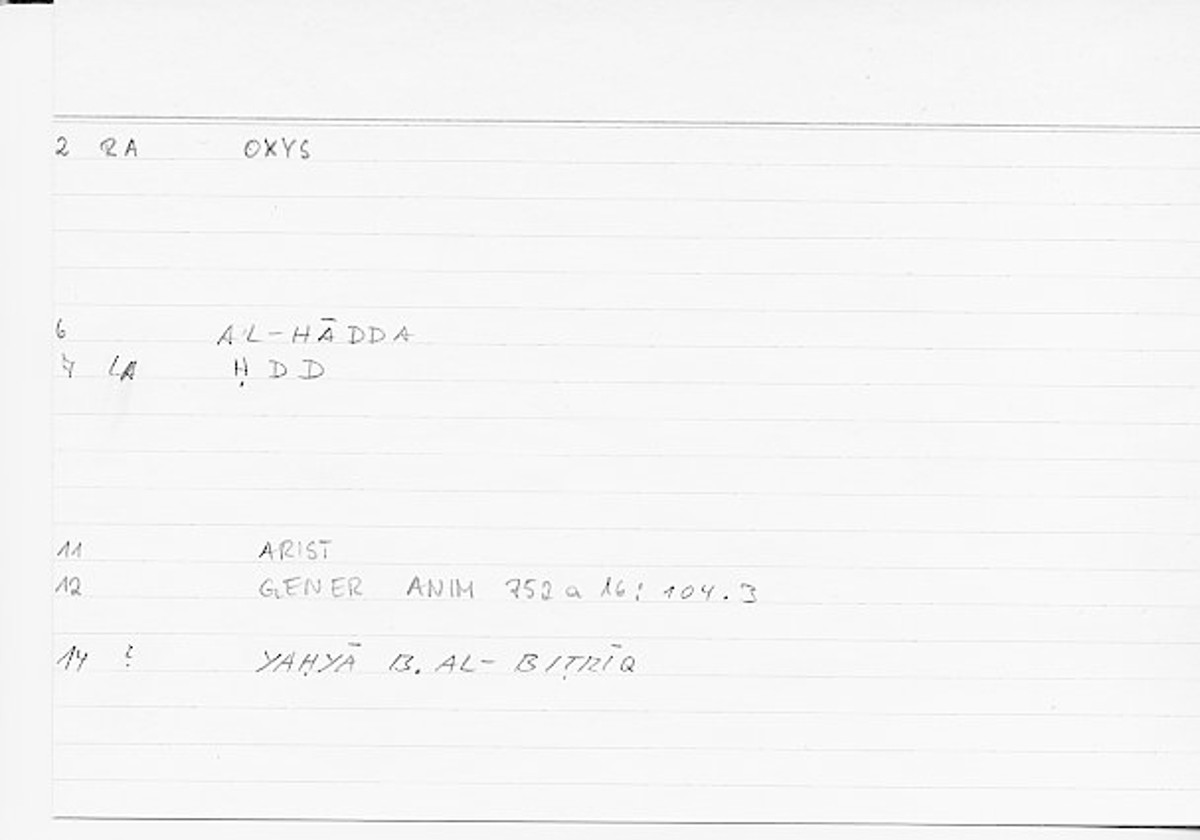 2 RA OXYS
6 AL-HĀDDA
7 LA ḤDD
11 ARIST
12 GENER ANIM 752a 16; 104.3
14 ? YAḤYĀ B. AL-BIṬRĪQ